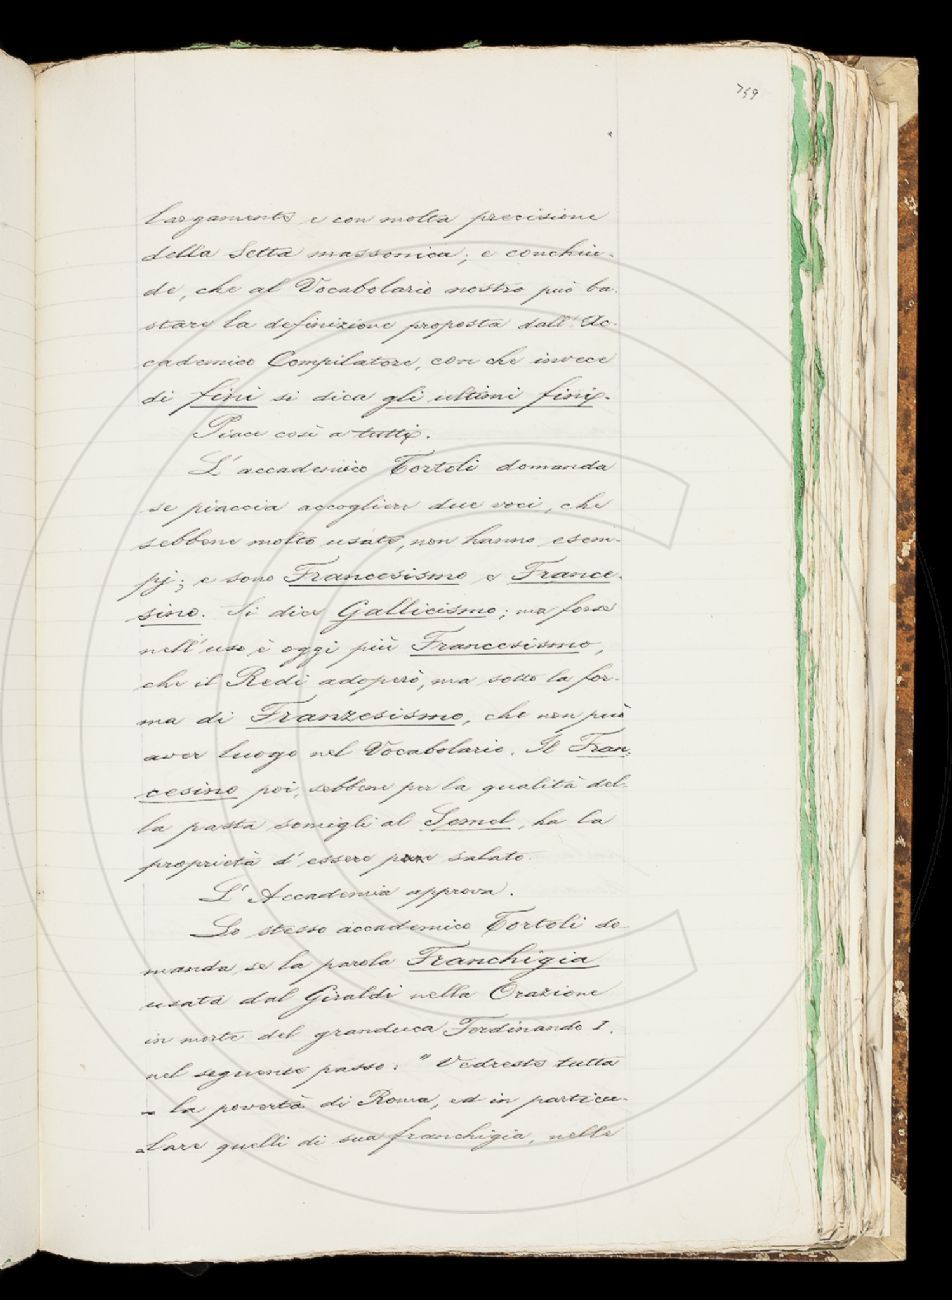 759
largamente e con molta precisione
della Setta massonica; e conchiu-
de, che al Vocabolario nostro può ba-
stare la definizione proposta dall'Ac-
cademico Compilatore, con che invece
di fini si dica gli ultimi fini.
Piace così a tutti.
L'accademico Tortoli domanda
se piaccia accogliere due voci, che
sebbene molto usate, non hanno esem-
pj; e sono Francesismo e France-
sino. Si dice Gallicismo; ma forse
nell'uso è oggi più Francesismo,
che il Redi adoperò, ma sotto la for-
ma di Franzesismo, che non può
aver luogo nel Vocabolario. Il Fran-
cesino poi, sebbene per la qualità del-
la pasta somigli al Semel, ha la
proprietà d'essere pane salato.
L'Accademia approva.
Lo stesso accademico Tortoli do-
manda, se la parola Franchigia
usata dal Giraldi nella Orazione
in morte del granduca Ferdinando I.
nel seguente passo: "Vedreste tutta
" la povertà di Roma, ed in particu-
" lare quelli di sua franchigia, nelle